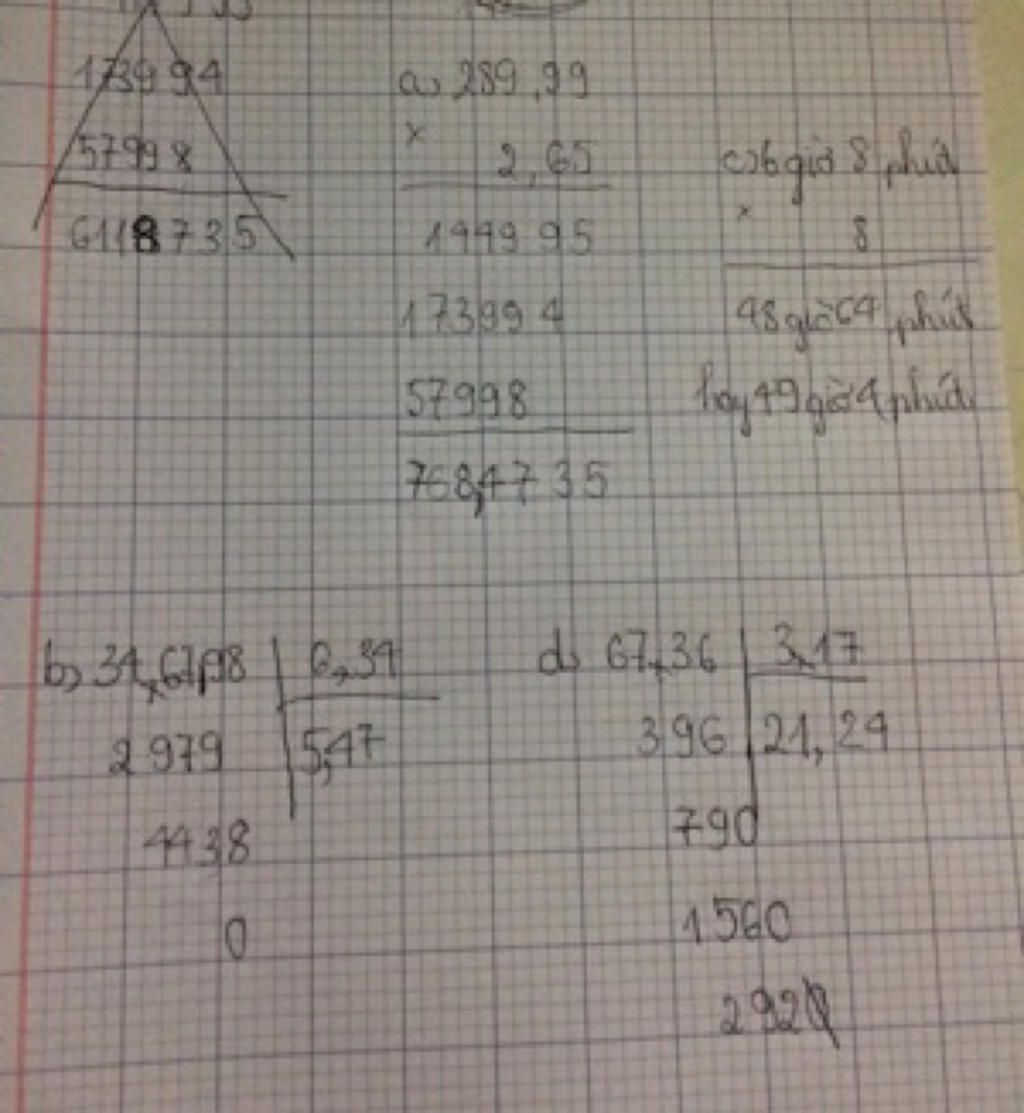 173994
57998
6118735
a) 289,99
×
2,65
144995
173994
57998
768,4735
c) 6 giờ 8 phút
×
8
48 giờ 64 phút
hay 49 giờ 4 phút
b) 34,67,98 6,34
2979 5,47
4438
0
d) 67,36 3,17
396 21,24
790
1560
292